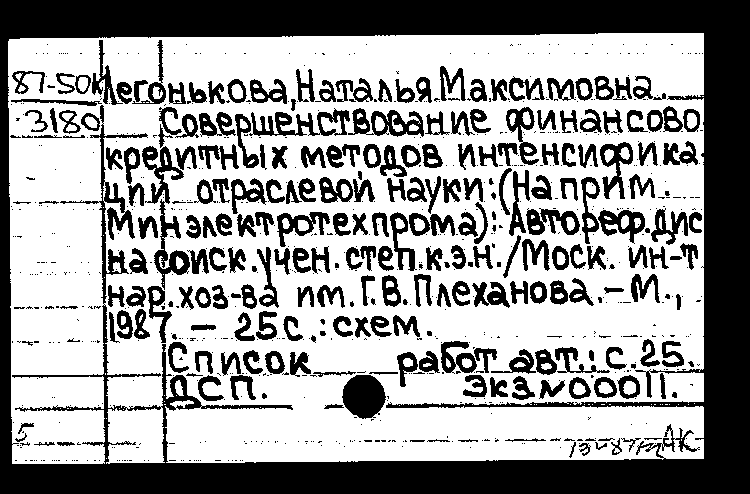 87-50к Легонькова, Наталья Максимовна.
3180 Совершенствование финансово
кредитных методов интенсифика-
ции отраслевой науки: (На прим.
Минэлектротехпрома): Автореф. дис
на соиск. учен. степ. к.э.н. / Моск. ин-т
нар. хоз-ва им. Г.В. Плеханова. - М.,
1987. - 25 с.: схем.
Список работ авт.: с. 25.
ДСП. Экз № 00011.
5
АК